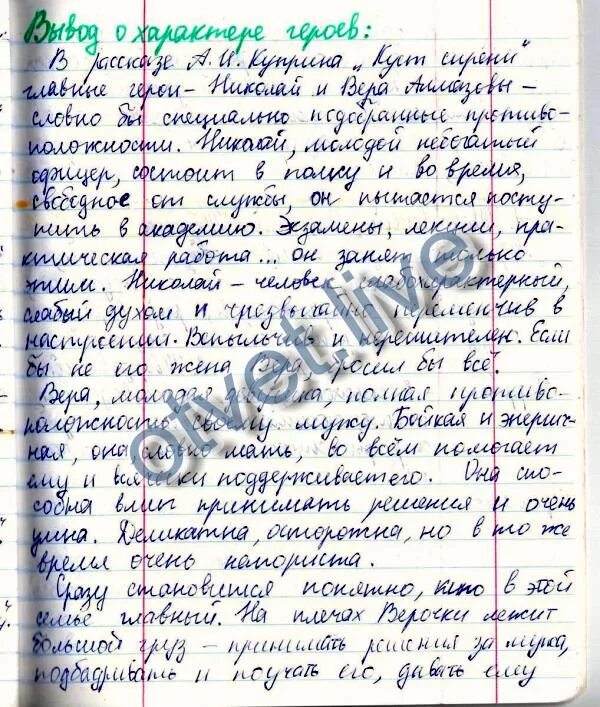 Вывод о характере героев:
В рассказе А.И. Куприна „Куст сирени"
главные герои – Николай и Вера Алмазовы –
словно бы специально подобранные противо-
положности. Николай, молодой небогатый
офицер, состоит в полку и во время,
свободное от службы, он пытается посту-
пить в академию. Экзамены, лекции, пра-
ктическая работа... он занят только
этим. Николай – человек слабохарактерный,
слабый духом и чрезвычайно переменчив в
настроении. Вспыльчив и нерешителен. Если
бы не его жена Вера, бросил бы всё.
Вера, молодая девушка, полная противо-
положность своему мужу. Бойкая и энергич-
ная, она, словно мать, во всём помогает
ему и всячески поддерживает его. Она спо-
собна вмиг принимать решения и очень
умна. Деликатна, осторожна, но в то же
время очень напориста.
Сразу становится понятно, кто в этой
семье главный. На плечах Верочки лежит
большой груз – принимать решения за мужа,
подбадривать и поучать его, давать ему
otvet.live